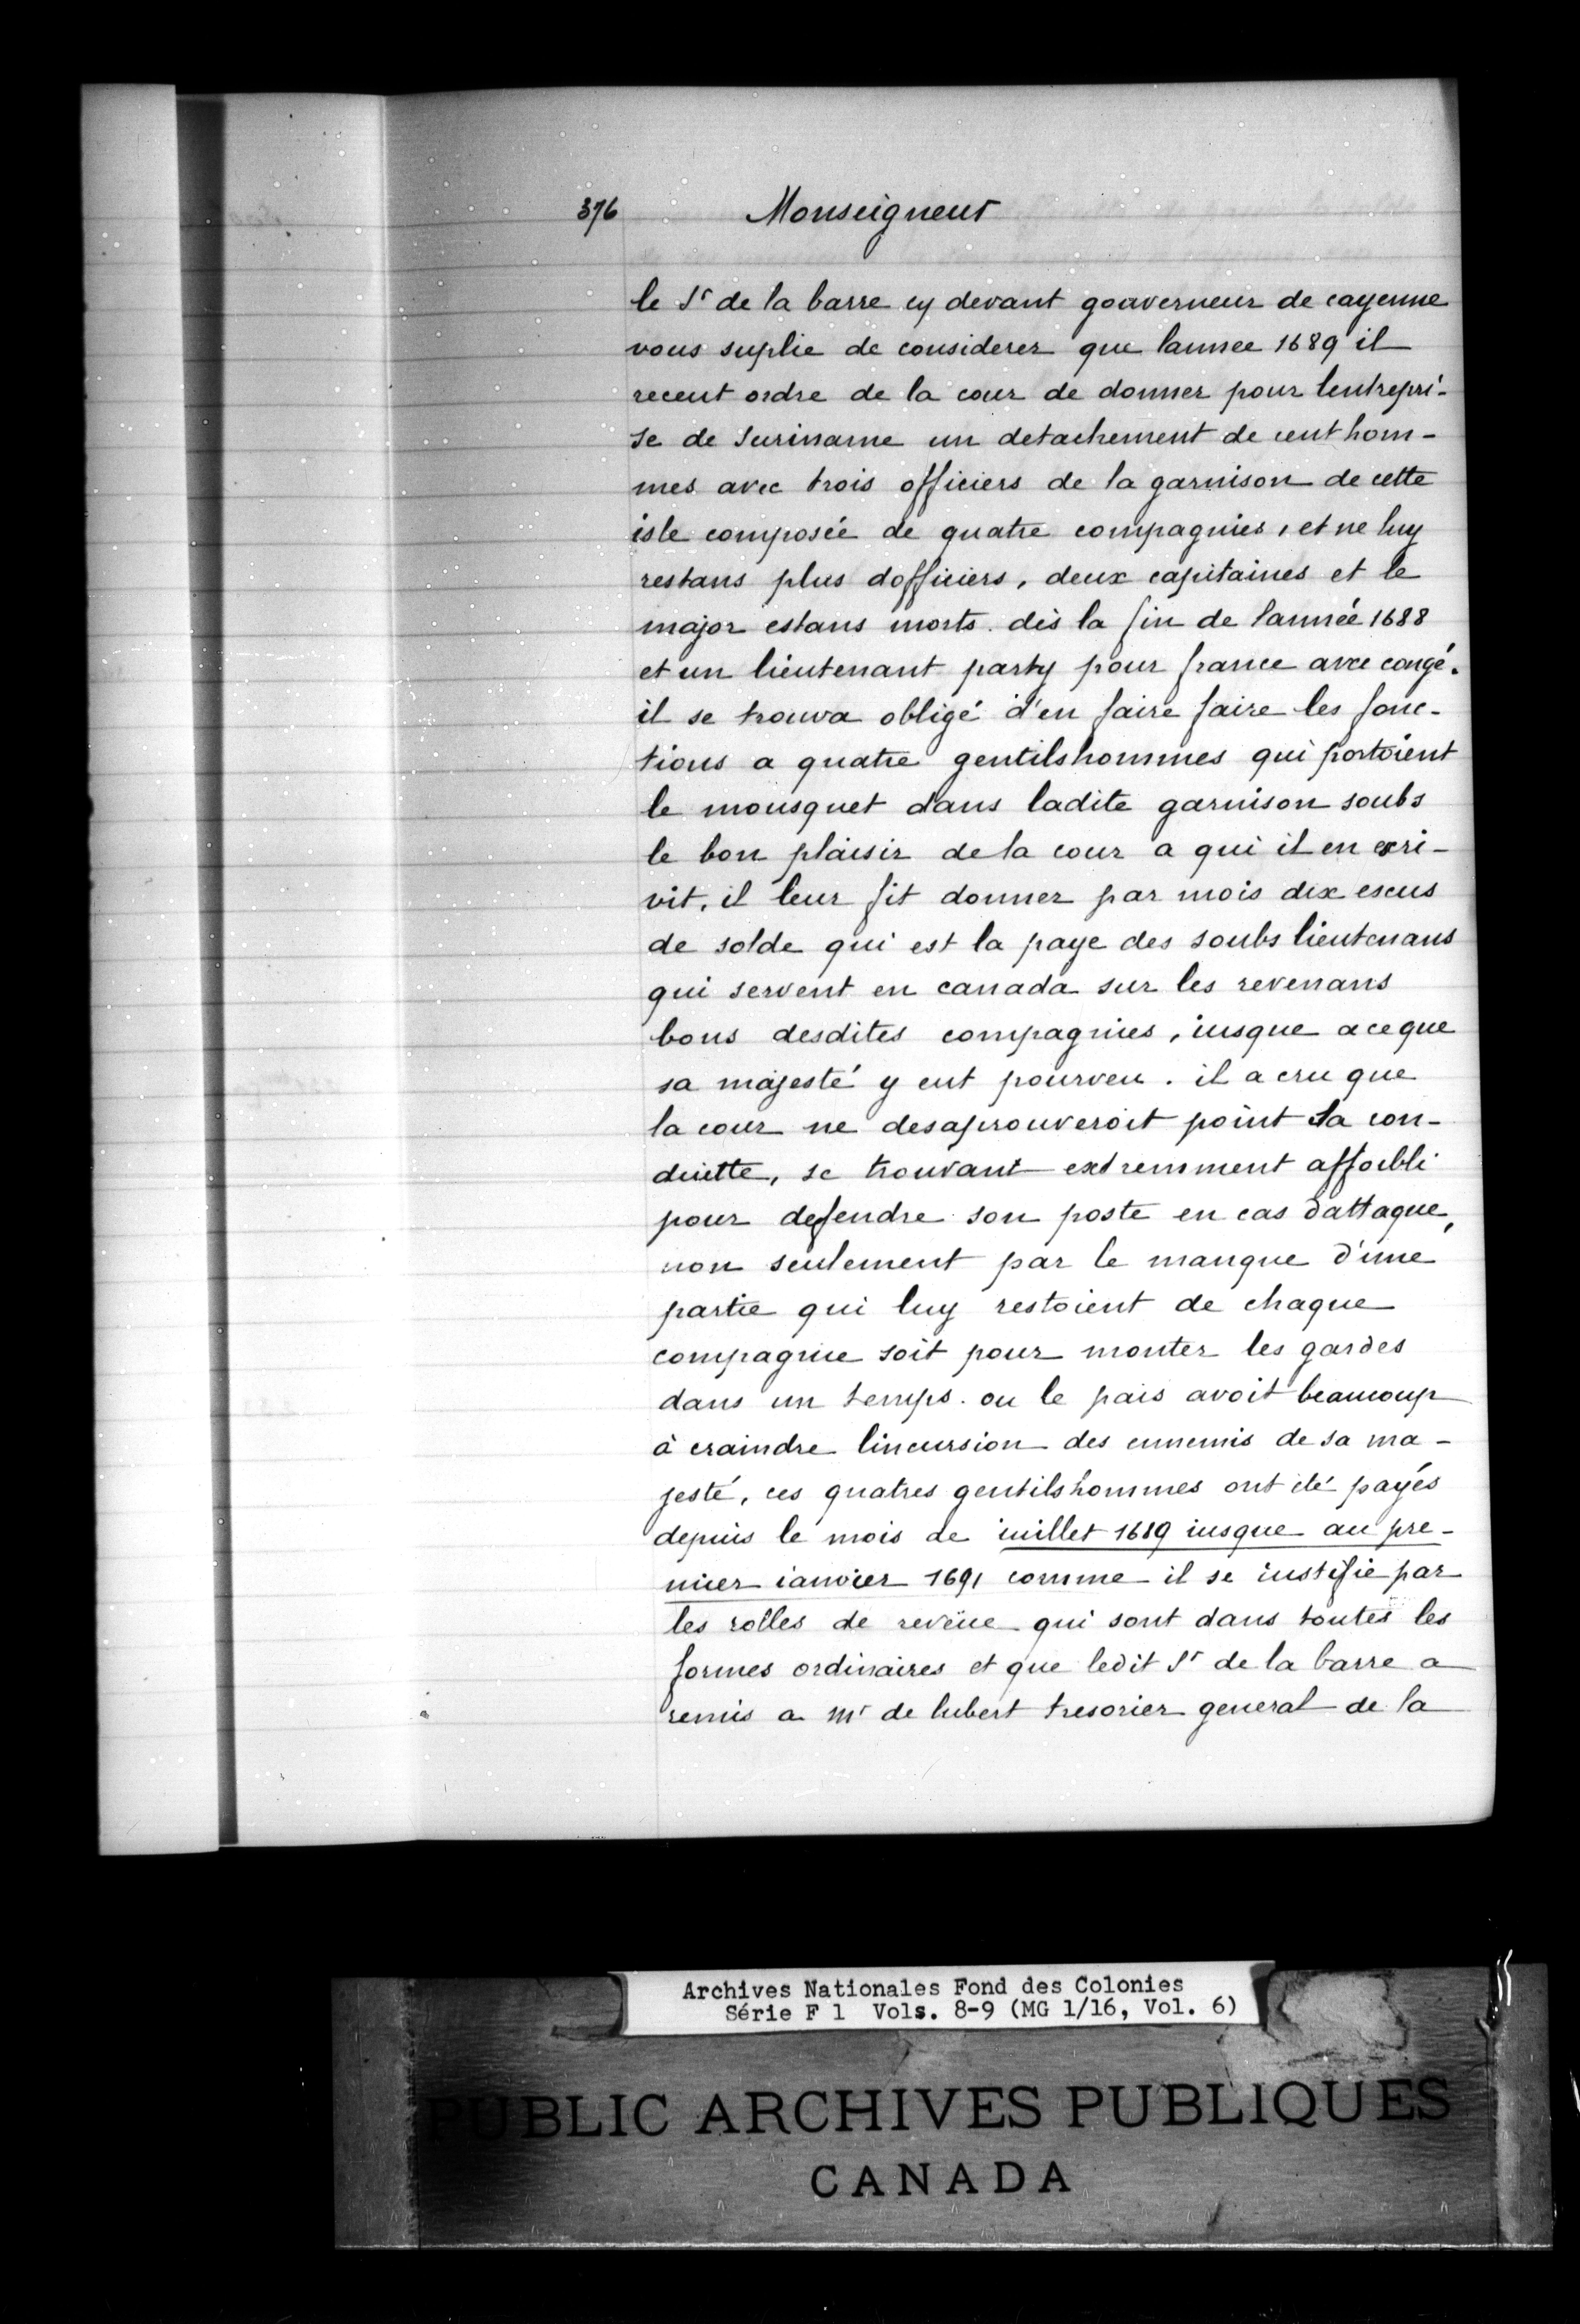 376 Monseigneur
le Sr de la barre cy devant gouverneur de cayenne
vous suplie de considerer que lannee 1689 il
receut ordre de la cour de donner pour lentrepri-
se de Suriname un detachement de cent hom-
mes avec trois officiers de la garnison de cette
isle composée de quatre compagnies, et ne luy
restans plus dofficiers, deux capitaines et le
major estans morts dès la fin de lannée 1688
et un lieutenant party pour france avec congé.
il se trouva obligé d'en faire faire les fonc-
tions a quatre gentilshommes qui portoient
le mousquet dans ladite garnison soubs
le bon plaisir de la cour a qui il en escri-
vit, il leur fit donner par mois dix escus
de solde qui est la paye des soubs lieutenans
qui servent en canada sur les revenans
bons desdites compagnies, iusque a ce que
sa majesté y eut pourveu. il a cru que
la cour ne desaprouveroit point sa con-
duitte, se trouvant extremment affoibli
pour defendre son poste en cas dattaque,
non seulement par le manque d'une
partie qui luy restoient de chaque
compagnie soit pour monter les gardes
dans un temps ou le pais avoit beaucoup
à craindre lincursion des ennemis de sa ma-
jesté, ces quatres gentilshommes ont été payés
depuis le mois de iuillet 1689 iusque au pre-
mier ianvier 1691 comme il se iustifie par
les rolles de reveüe qui sont dans toutes les
formes ordinaires et que ledit Sr de la barre a
remis a mr de lubert tresorier general de la
Archives Nationales Fond des Colonies
Série F 1 Vols. 8-9 (MG 1/16, Vol. 6)
PUBLIC ARCHIVES PUBLIQUES
CANADA